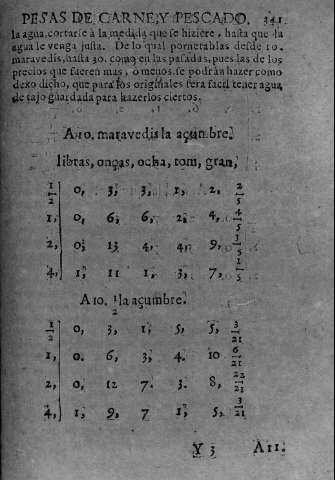 PESAS DE CARNE, Y PESCADO. 341.
la agua, cortarse à la medida que se hiziere, hasta que la
agua le venga justa. De lo qual pornè tablas desde 10.
maravedis, hasta 30. como en las passadas, pues las de los
precios que fueren mas, o menos, se podràn hazer como
dexo dicho, que para los originales sera facil tener agua
de tajo guardada para hazerlos ciertos.
A 10. maravedis la açumbre.
libras, onças, ocha, tom, gran,
1/2 0, 3, 3, 1, 2, 2/5
1, 0, 6, 6, 2, 4, 4/5
2, 0, 13 4, 4, 9, 3/5
4, 1, 11 1, 3, 7, 1/5
A 10. 1/2 la açumbre.
1/2 0, 3, 1, 5, 5, 3/21
1, 0. 6, 3, 4. 10 6/21
2, 0, 12 7. 3. 8, 12/21
4, 1, 9, 7 1, 5, 3/21
Y 3 A 11.